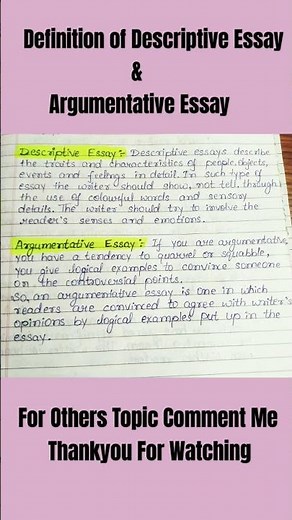 Definition of Descriptive Essay
&
Argumentative Essay
Descriptive Essay :- Descriptive essays describe
the traits and characteristics of people, objects,
events and feelings in detail. In such type of
essay the writer should show, not tell, through
the use of colourful words and sensory
details. The writer should try to involve the
reader's senses and emotions.
Argumentative Essay : If you are argumentative,
you have a tendency to quarrel or squabble,
you give logical examples to convince someone
on the controversial points.
So, an argumentative essay is one in which
readers are convinced to agree with writer's
opinions by logical examples put up in the
essay.
For Others Topic Comment Me
Thankyou For Watching